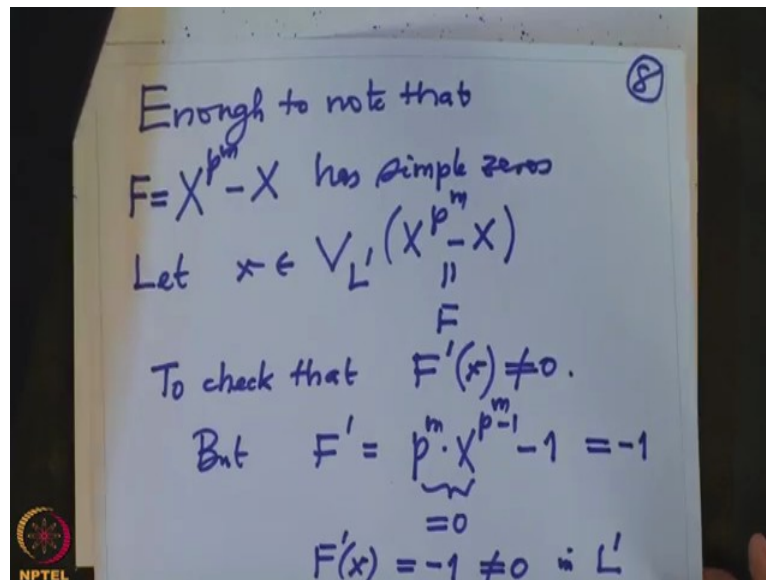 ⑧
Enough to note that
F = X^{p^m} - X has simple zeros
Let x ∈ V_{L'} (X^{p^m} - X)
||
F
To check that F'(x) ≠ 0.
But F' = p^m · X^{p^m-1} - 1 = -1
= 0
F'(x) = -1 ≠ 0 in L'
NPTEL